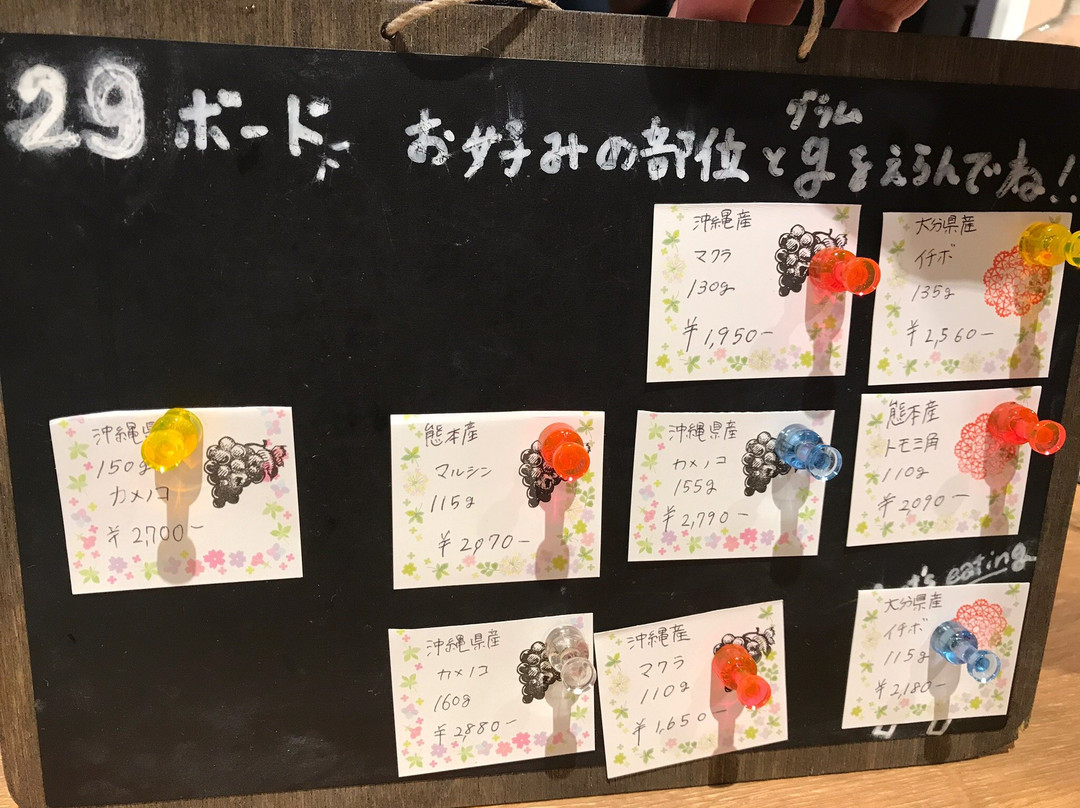 29 ボード
グラム
お好みの部位とgをえらんでね!!
沖縄産
マクラ
130g
¥1,950-
大分県産
イチボ
135g
¥2,560-
沖縄県
150g
カメノコ
¥2,700-
熊本産
マルシン
115g
¥2,070-
沖縄県産
カメノコ
155g
¥2,790-
熊本産
トモ三角
110g
¥2090-
eating
沖縄県産
カメノコ
160g
¥2,880-
沖縄産
マクラ
110g
¥1,650-
大分県産
イチボ
115g
¥2,180-